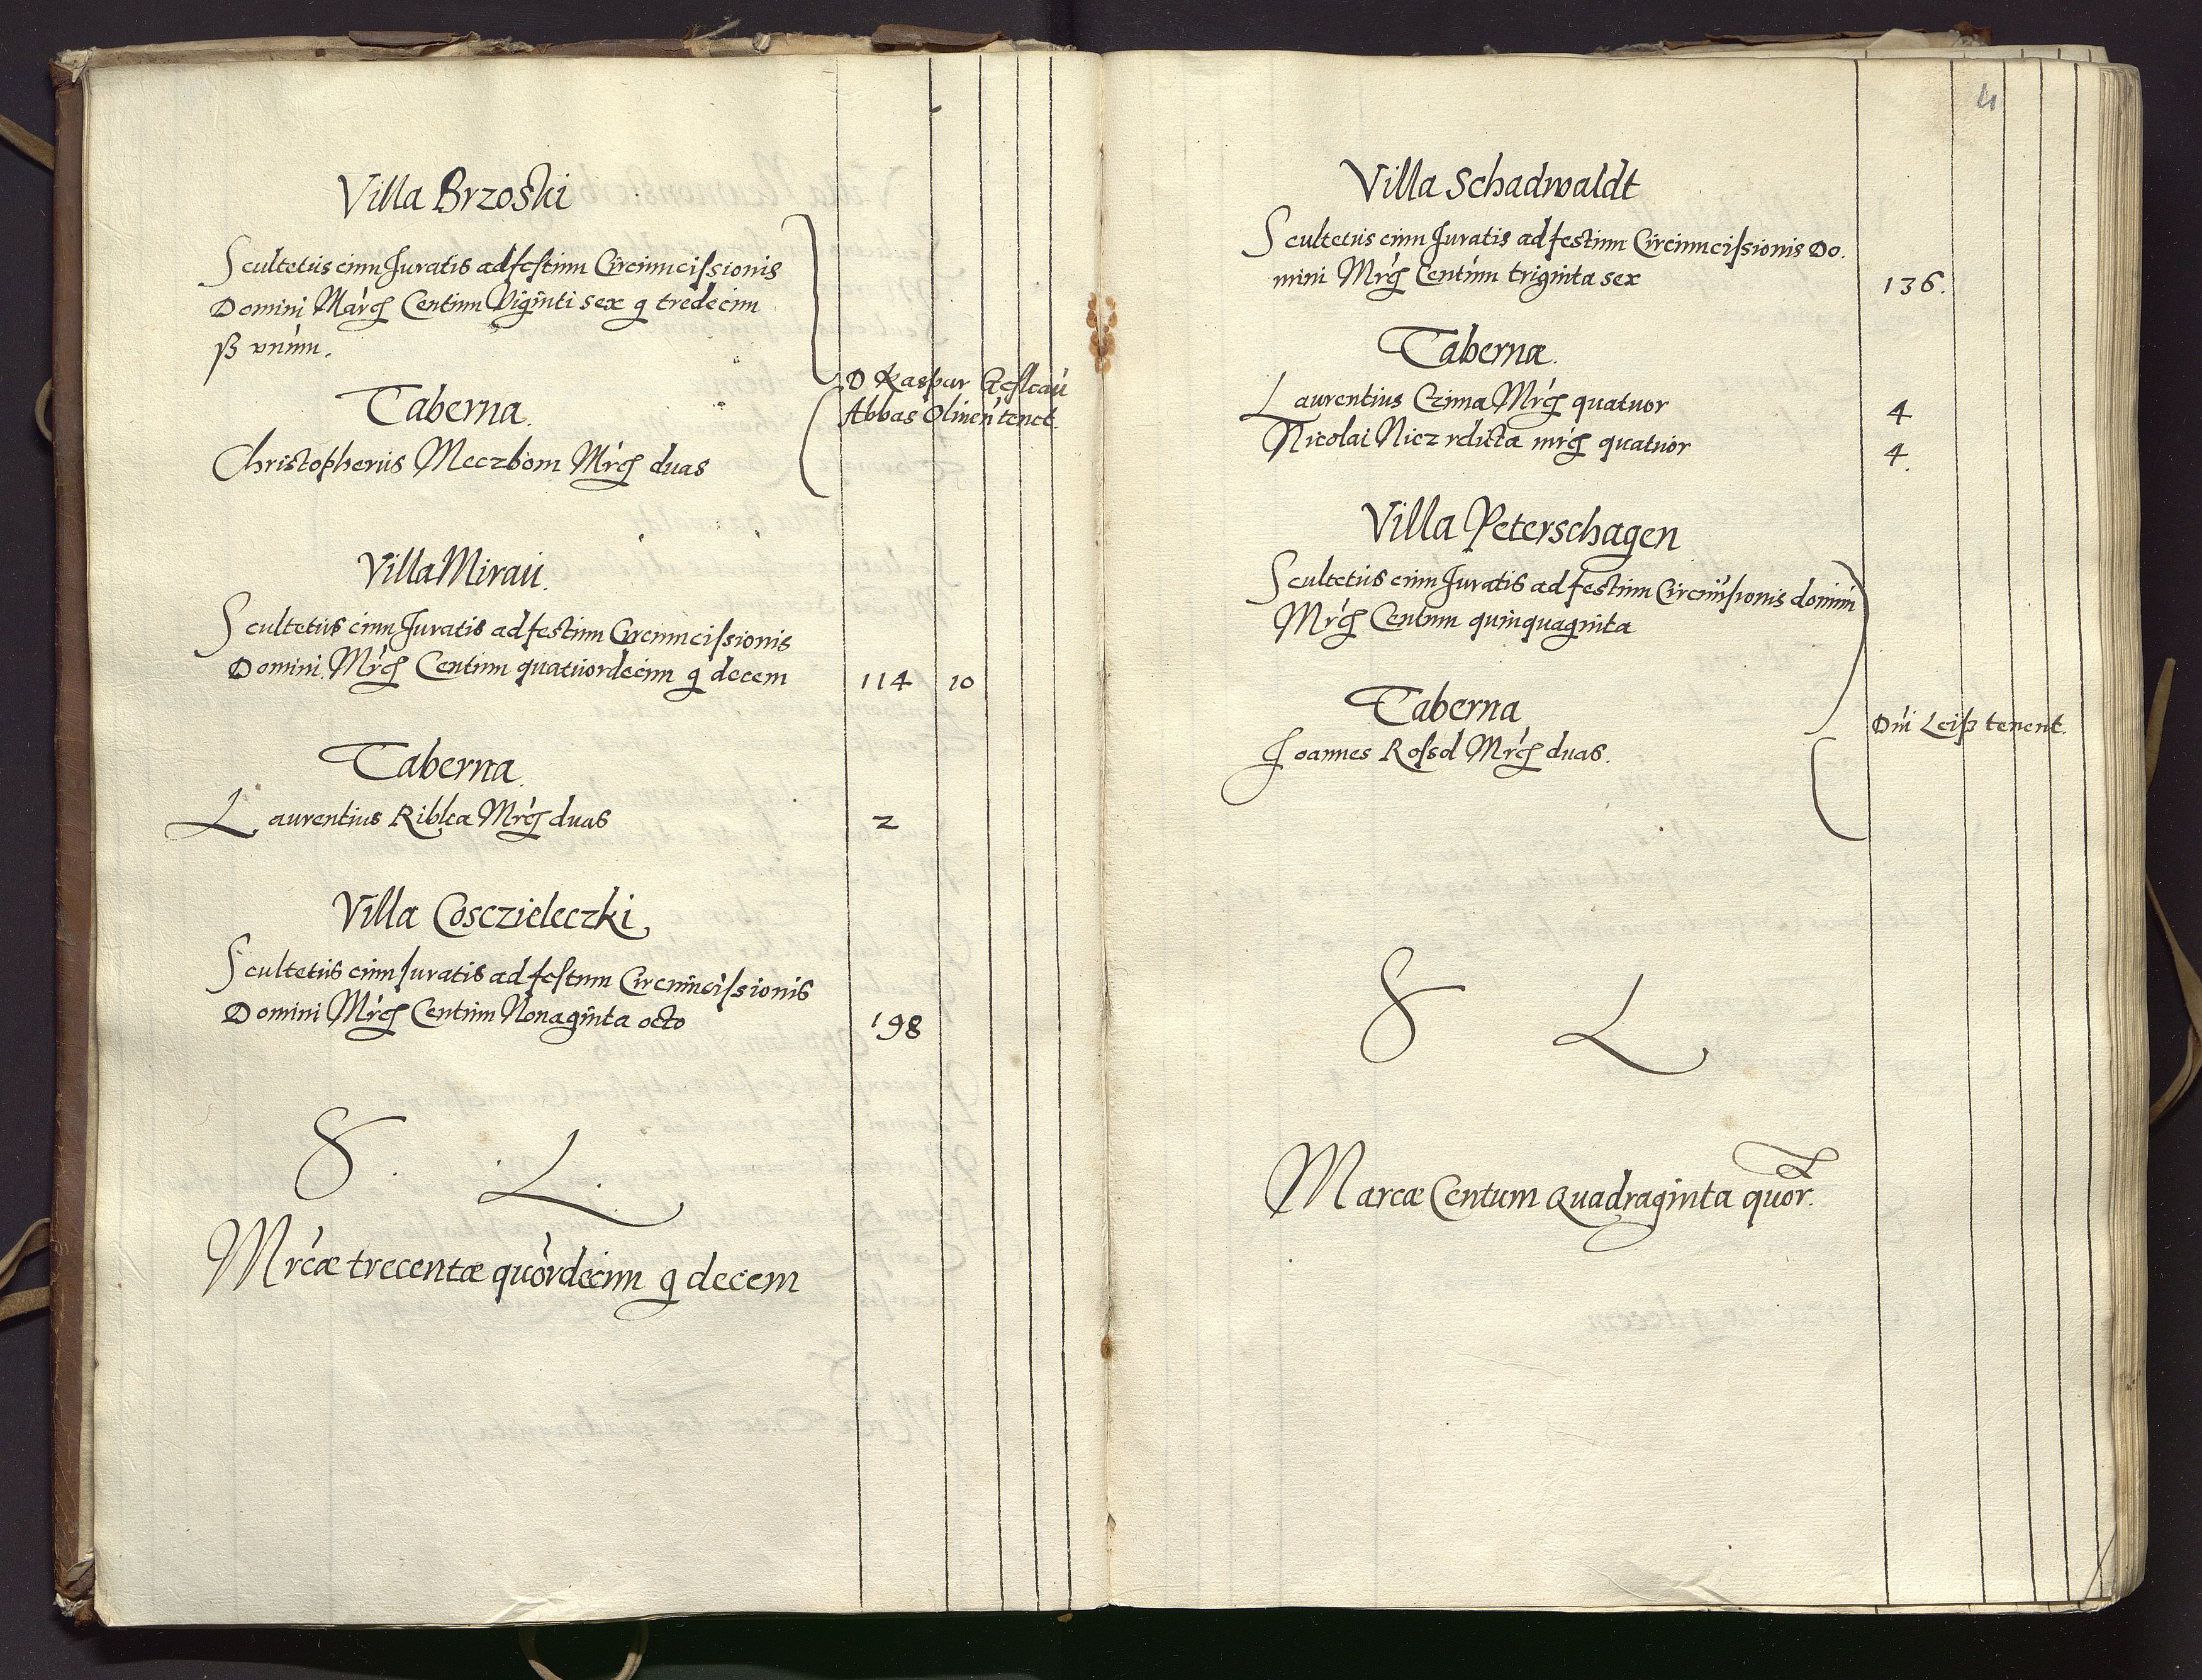 Villa Brzoski
Scultetus cum Juratis ad festum Circumcissionis
Domini Marcs Centum Viginti sex g tredecim
ß vnum.
D Kaspar
Abbas Oliuen tenet.
Taberna.
Christopherus Meczbom Mrcs duas
Villa Mirau.
Scultetus cum Juratis ad festum Circumcissionis
Domini Mrcs Centum quatuordecim g decem 114 10
Taberna
Laurentius Riblca Mrcs duas 2
Villa Cosczieleczki
Scultetus cum Juratis ad festum Circumcissionis
Domini Mrcs Centum Nonaginta octo 198
S. L.
Mrcæ trecentæ quordecim g decem
4
Villa Schadwaldt
Scultetus cum Juratis ad festum Circumcissionis Do.
mini Mrcs Centum triginta sex 136.
Tabernæ.
Laurentius Czima Mrcs quatuor 4
Nicolai Nicz relicta mrcs quatuor 4.
Villa Peterschagen
Scultetus cum Juratis ad festum Circumsionis domini
Mrcs Centum quinquaginta
Taberna
Dni Leiß tenent.
Joannes Rossol Mrcs duas.
S L
Marcæ Centum Quadraginta quor.